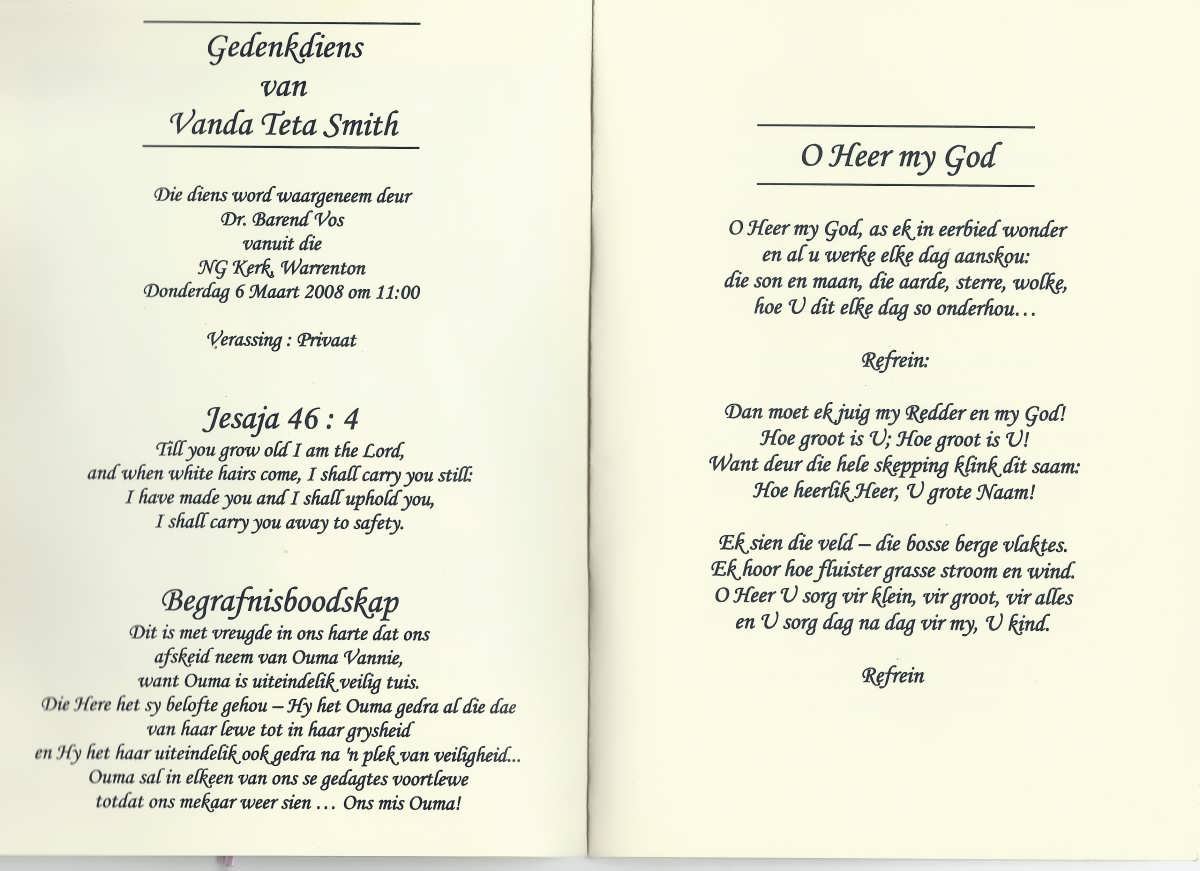 Gedenkdiens
van
Vanda Teta Smith
Die diens word waargeneem deur
Dr. Barend Vos
vanuit die
NG Kerk, Warrenton
Donderdag 6 Maart 2008 om 11:00
Verassing : Privaat
Jesaja 46 : 4
Till you grow old I am the Lord,
and when white hairs come, I shall carry you still:
I have made you and I shall uphold you,
I shall carry you away to safety.
Begrafnisboodskap
Dit is met vreugde in ons harte dat ons
afskeid neem van Ouma Vannie,
want Ouma is uiteindelik veilig tuis.
Die Here het sy belofte gehou – Hy het Ouma gedra al die dae
van haar lewe tot in haar grysheid
en Hy het haar uiteindelik ook gedra na 'n plek van veiligheid...
Ouma sal in elkeen van ons se gedagtes voortlewe
totdat ons mekaar weer sien … Ons mis Ouma!
O Heer my God
O Heer my God, as ek in eerbied wonder
en al u werke elke dag aanskou:
die son en maan, die aarde, sterre, wolke,
hoe U dit elke dag so onderhou…
Refrein:
Dan moet ek juig my Redder en my God!
Hoe groot is U; Hoe groot is U!
Want deur die hele skepping klink dit saam:
Hoe heerlik Heer, U grote Naam!
Ek sien die veld – die bosse berge vlaktes.
Ek hoor hoe fluister grasse stroom en wind.
O Heer U sorg vir klein, vir groot, vir alles
en U sorg dag na dag vir my, U kind.
Refrein